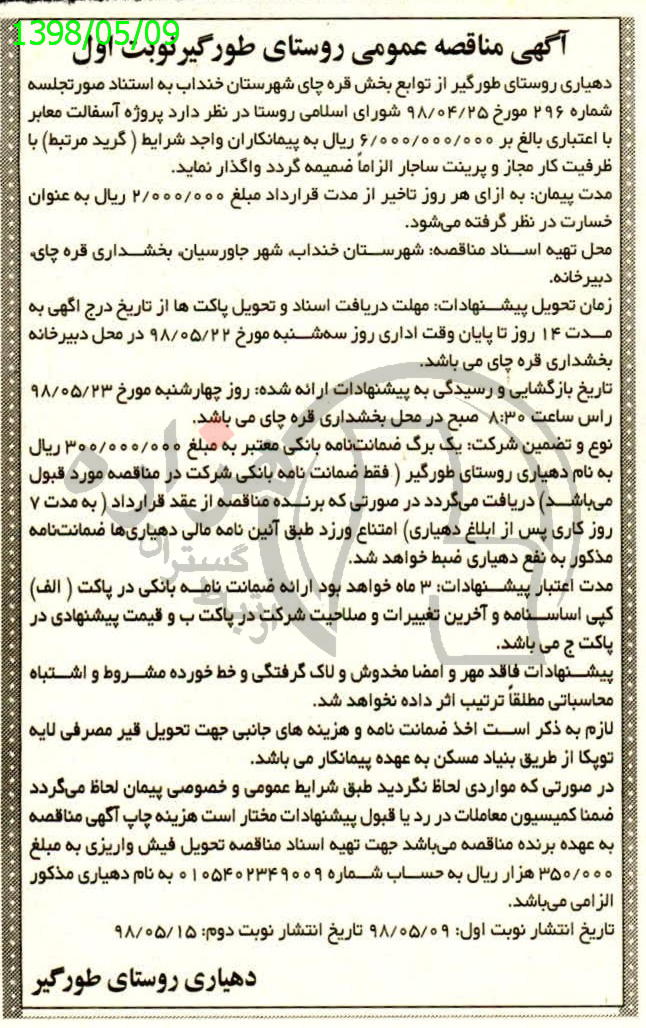 1398/05/09
آگهی مناقصه عمومی روستای طورگیر نوبت اول
دهیاری روستای طورگیر از توابع بخش قره چای شهرستان خنداب به استناد صورتجلسه
شماره ۲۹۶ مورخ ۹۸/۰۴/۲۵ شورای اسلامی روستا در نظر دارد پروژه آسفالت معابر
با اعتباری بالغ بر ۶/۰۰۰/۰۰۰/۰۰۰ ریال به پیمانکاران واجد شرایط ( گرید مرتبط) با
ظرفیت کار مجاز و پرینت ساجار الزاماً ضمیمه گردد واگذار نماید.
مدت پیمان: به ازای هر روز تاخیر از مدت قرارداد مبلغ ۲/۰۰۰/۰۰۰ ریال به عنوان
خسارت در نظر گرفته می‌شود.
محل تهیه اسـناد مناقصه: شهرستان خنداب، شهر جاورسیان، بخشـداری قره چای،
دبیرخانه.
زمان تحویل پیشـنهادات: مهلت دریافت اسناد و تحویل پاکت ها از تاریخ درج اگهی به
مـدت ۱۴ روز تا پایان وقت اداری روز سه‌شنبه مورخ ۹۸/۰۵/۲۲ در محل دبیرخانه
بخشداری قره چای می باشد.
تاریخ بازگشایی و رسیدگی به پیشنهادات ارائه شده: روز چهارشنبه مورخ ۹۸/۰۵/۲۳
راس ساعت ۸:۳۰ صبح در محل بخشداری قره چای می باشد.
نوع و تضمین شرکت: یک برگ ضمانت‌نامه بانکی معتبر به مبلغ ۳۰۰/۰۰۰/۰۰۰ ریال
به نام دهیاری روستای طورگیر ( فقط ضمانت نامه بانکی شرکت در مناقصه مورد قبول
می‌باشـد) دریافت می‌گردد در صورتی که برنـده مناقصه از عقد قرارداد ( به مدت ۷
روز کاری پس از ابلاغ دهیاری) امتناع ورزد طبق آئین نامه مالی دهیاری‌ها ضمانت‌نامه
مذکور به نفع دهیاری ضبط خواهد شد.
مدت اعتبار پیشـنهادات: ۳ ماه خواهد بود ارائه ضمانت نامـه بانکی در پاکت ( الف)
کپی اساسـنامه و آخرین تغییرات و صلاحیت شرکت در پاکت ب و قیمت پیشنهادی در
پاکت ج می باشد.
پیشـنهادات فاقد مهر و امضا مخدوش و لاک گرفتگی و خط خورده مشـروط و اشـتباه
محاسباتی مطلقاً ترتیب اثر داده نخواهد شد.
لازم به ذکر اسـت اخذ ضمانت نامه و هزینه های جانبی جهت تحویل قیر مصرفی لایه
توپکا از طریق بنیاد مسکن به عهده پیمانکار می باشد.
در صورتی که مواردی لحاظ نگردید طبق شرایط عمومی و خصوصی پیمان لحاظ می‌گردد
ضمنا کمیسیون معاملات در رد یا قبول پیشنهادات مختار است هزینه چاپ آگهی مناقصه
به عهده برنده مناقصه می‌باشد جهت تهیه اسناد مناقصه تحویل فیش واریزی به مبلغ
۳۵۰/۰۰۰ هزار ریال به حسـاب شـماره ۰۱۰۵۴۰۲۳۴۹۰۰۹ به نام دهیاری مذکور
الزامی می‌باشد.
تاریخ انتشار نوبت اول: ۹۸/۰۵/۰۹ تاریخ انتشار نوبت دوم: ۹۸/۰۵/۱۵
دهیاری روستای طورگیر
هزاره
گستران